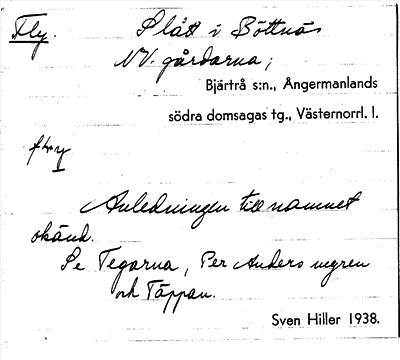 Fly. Slått i Böttnäs
NV. gårdarna;
Bjärtrå s:n., Ångermanlands
södra domsagas tg., Västernorrl. l.
fly
Anledningen till namnet
okänd.
Se Tegarna, Per Anders
och Täppan.
Sven Hiller 1938.